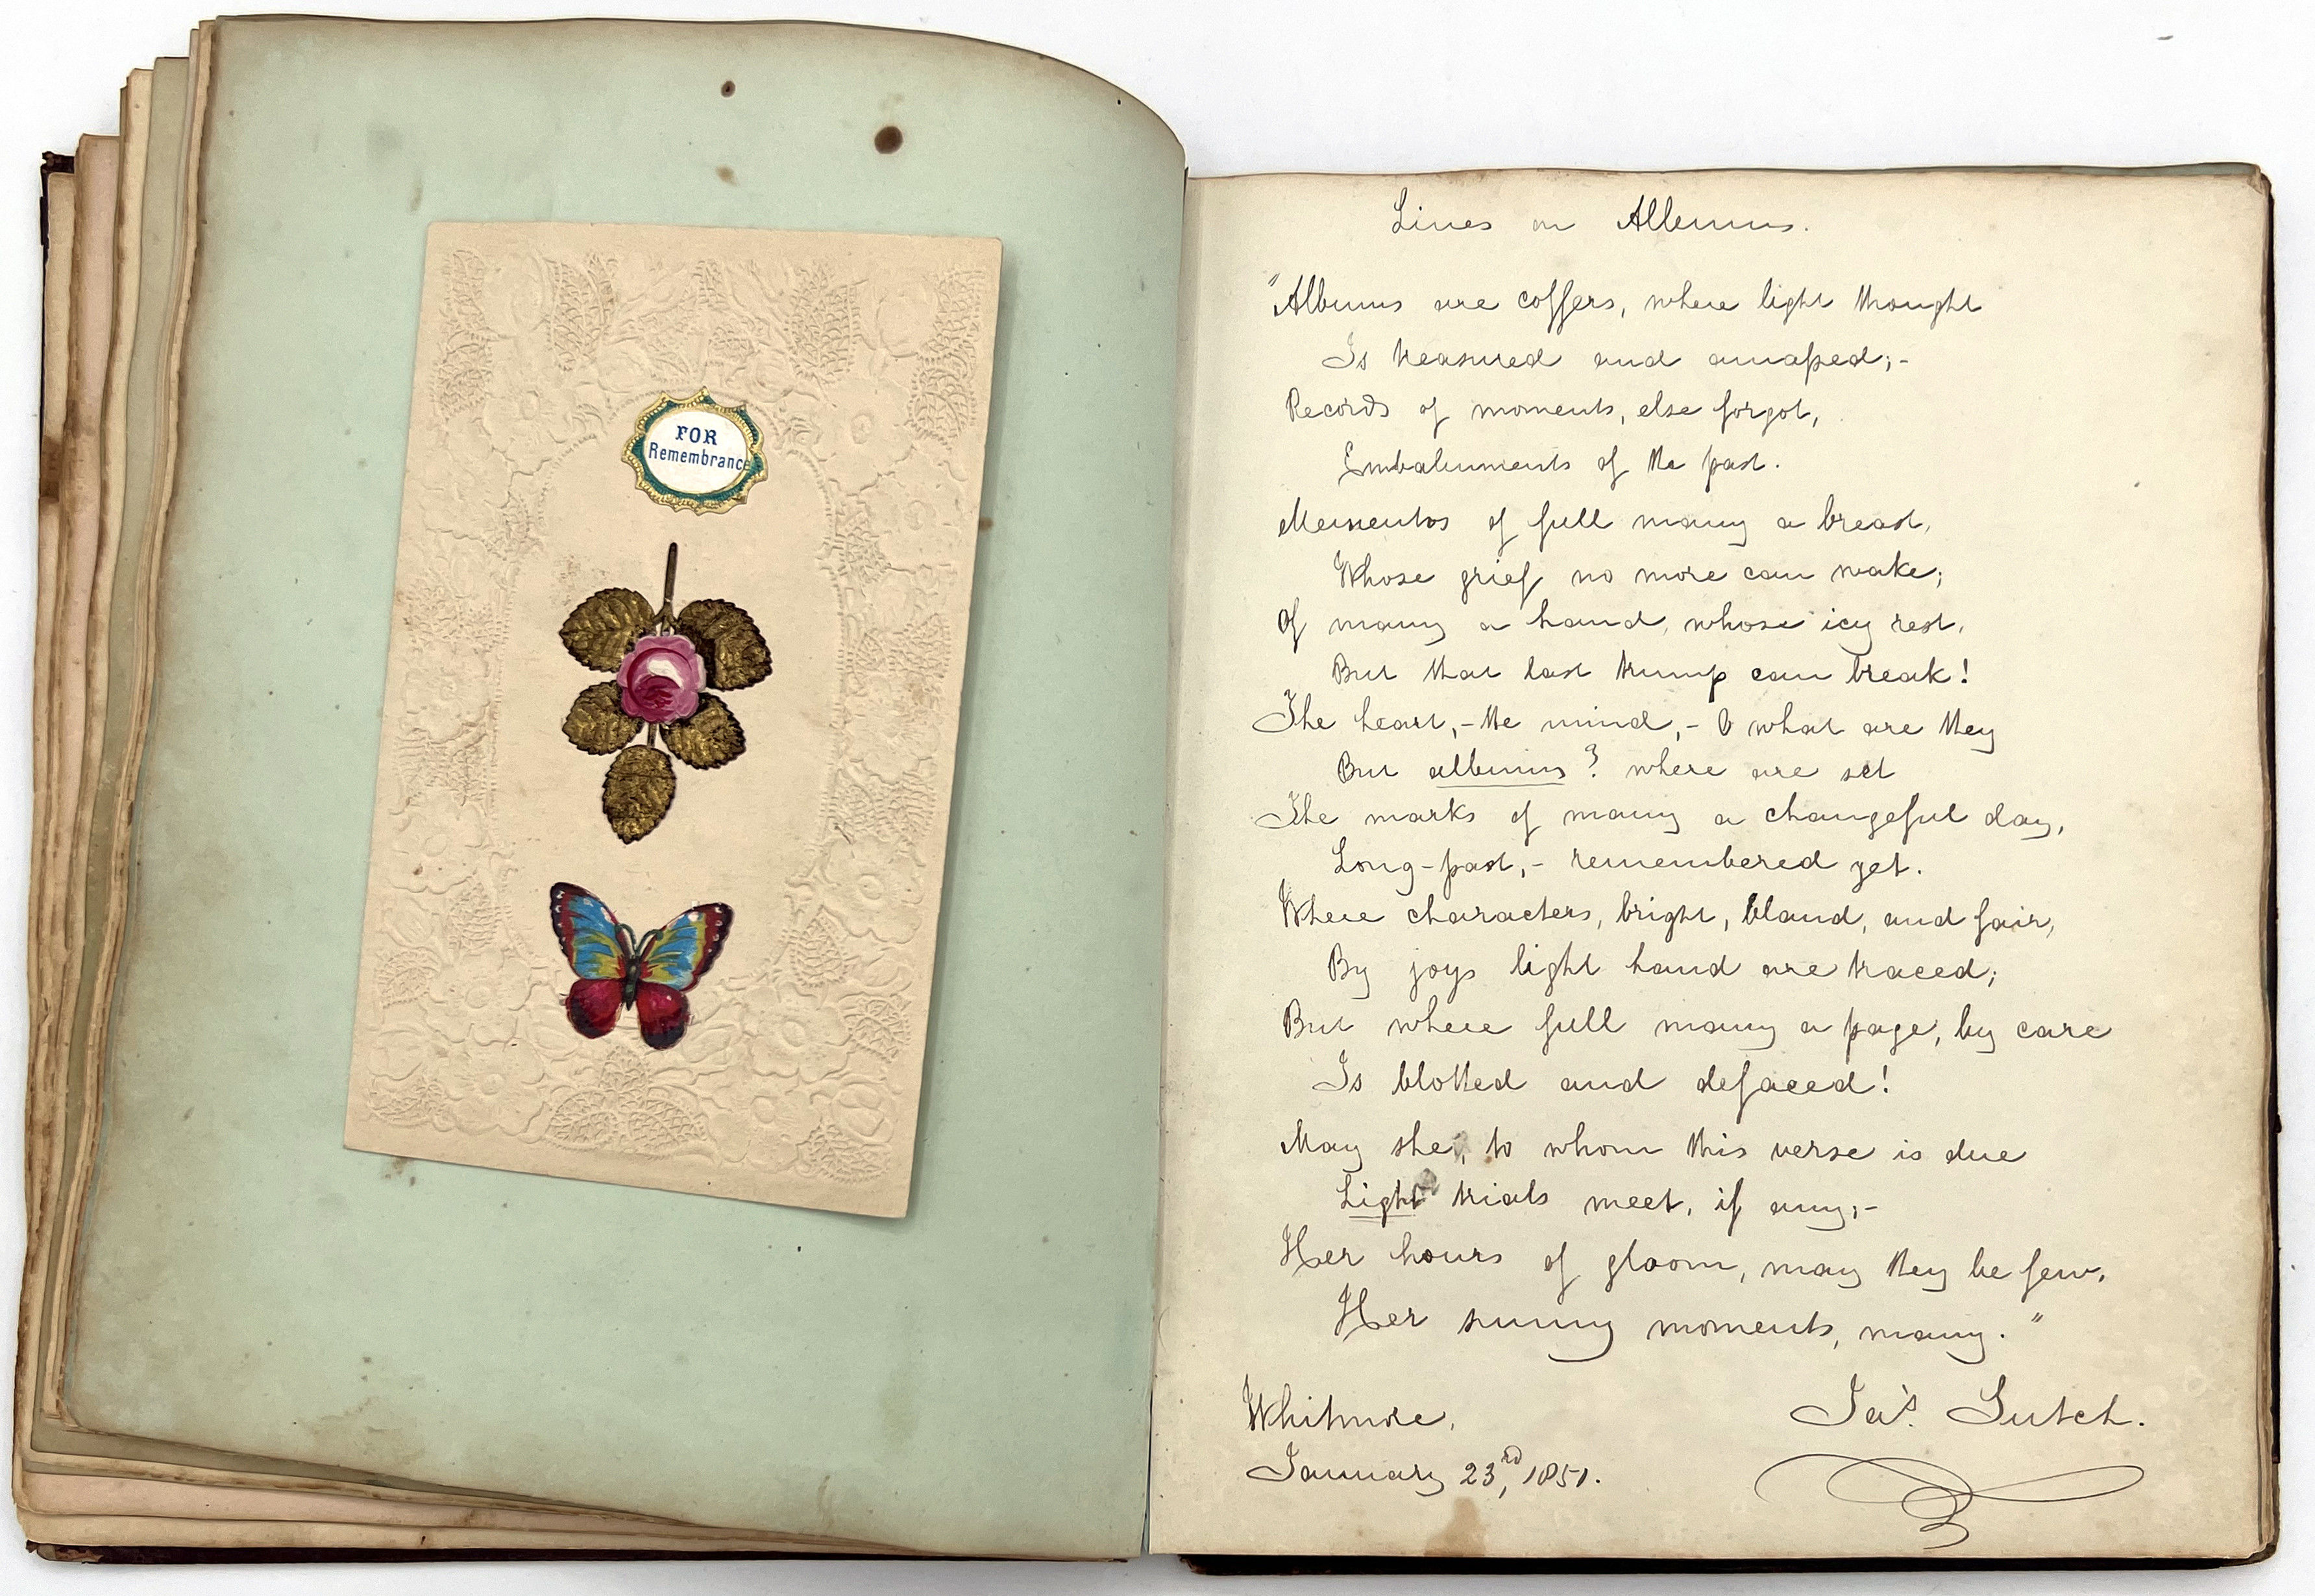 FOR
Remembrance
Lines on Albums.
"Albums are coffers, where light thought
Is treasured and amaſsed;-
Records of moments, else forgot,
Embalmments of the past.
Mementos of full many a breast,
Whose grief no more can wake;
Of many a hand, whose icy rest,
But that last trump can break!
The heart,- the mind,- O what are they
But albums? where are set
The marks of many a changeful day,
Long-past,- remembered yet.
Where characters, bright, bland, and fair,
By joys light hand are traced;
But where full many a page, by care
Is blotted and defaced!
May she, to whom this verse is due
Light trials meet, if any;-
Her hours of gloom, may they be few,
Her sunny moments, many."
Whitmore,
Jas. Gutch.
January 23rd, 1851.